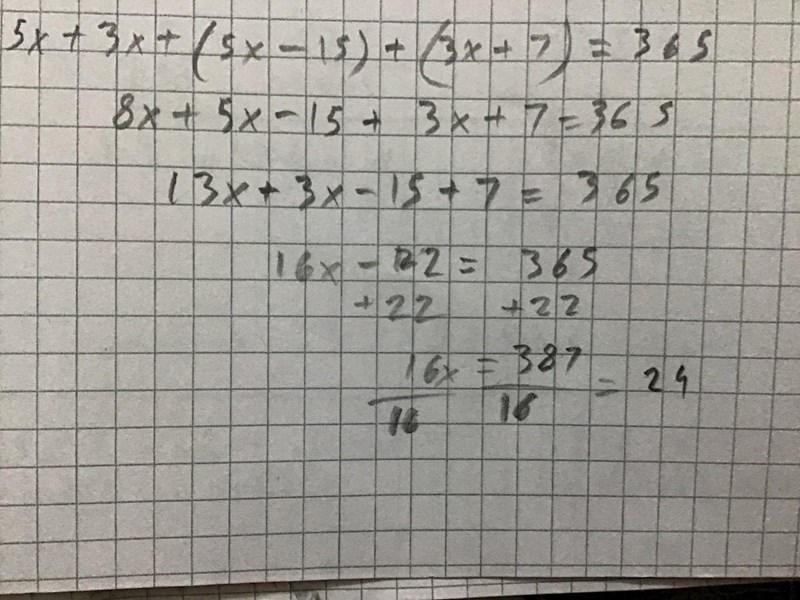 5x + 3x + (5x - 15) + (3x + 7) = 365
8x + 5x - 15 + 3x + 7 = 365
13x + 3x - 15 + 7 = 365
16x - 22 = 365
+22 +22
16x = 387
16 16 = 24